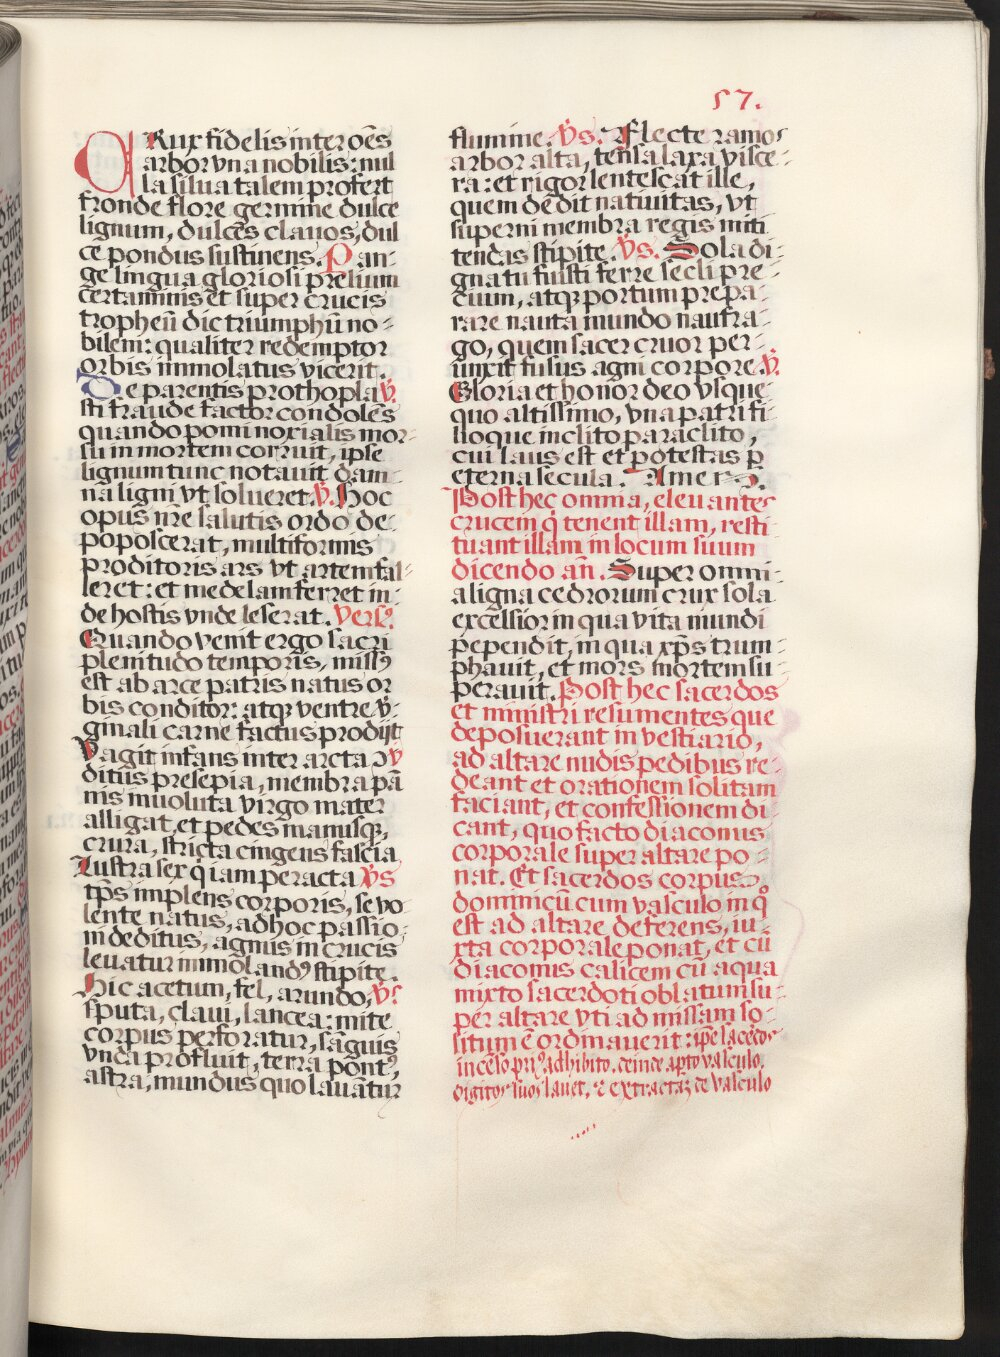 57.
CRux fidelis inter oēs
arbor vna nobilis: nul
la silua talem profert
fronde flore germine dulce
lignum, dulces clauos, dul
ce pondus sustinens. Pan-
ge lingua gloriosi prelium
certaminis et super crucis
tropheū dic triumphū no-
bilem: qualiter redemptor
orbis immolatus vicerit.
De parentis prothopla V̄.
sti fraude factor condolēs
quando pomi noxialis mor-
su in mortem corruit, ipse
lignum tunc notauit dam-
na ligni vt solueret. V̄. Hoc
opus nr̄e salutis ordo de-
poposcerat, multiformis
proditoris ars vt artem fal-
leret: et medelam ferret in-
de hostis vnde leserat. Versꝰ.
Quando venit ergo sacri
plenitudo temporis, missꝰ
est ab arce patris natus or
bis conditor: atqꝫ ventre v̄-
ginali carne factus prodijt
Vagit infans inter arcta ↄ V̄
ditus presepia, membra pā
nis inuoluta virgo mater
alligat, et pedes manusqꝫ,
crura, stricta cingens fascia
Lustra sex qͥ iam peracta Vs̄
tp̄s implens corporis, se vo-
lente natus, ad hoc passio-
ni deditus, agnus in crucis
leuatur immolandꝰ stipite.
Hic acetum, fel, arundo, Vs̄
sputa, claui, lancea: mite
corpus perforatur, sāguis
vnda profluit, terra pontꝰ
astra, mundus quo lauātur
flumine. Vs̄. Flecte ramos
arbor alta, tensa laxa visce-
ra: et rigor lentescat ille,
quem dedit natiuitas, vt
superni membra regis miti
tendas stipite. Vs̄. Sola di-
gna tu fuisti ferre secli pre-
cium, atqꝫ portum prepa-
rare nauta mundo naufra-
go, quem sacer cruor per-
unxit fusus agni corpore. V̄.
Gloria et honor deo vsque
quo altissimo, vna patri fi-
lioque inclito paraclito,
cui laus est et potestas ꝑ
eterna secula. Amen.
Post hec omnia, eleuantes
crucem qͥ tenent illam, resti
tuant illam in locum suum
dicendo an̄. Super omni-
a ligna cedrorum crux sola
excelsior in qua vita mundi
pependit, in qua xp̄s trium-
phauit, et mors mortem su-
perauit. Post hec sacerdos
et ministri resumentes que
deposuerant in vestiario,
ad altare nudis pedibus re-
deant et orationem solitam
faciant, et confessionem di-
cant, quo facto diaconus
corporale super altare po-
nat. Et sacerdos corpus
dominicū cum vasculo in qͦ
est ad altare deferens, iu-
xta corporale ponat, et cū
diaconus calicem cū aqua
mixto sacerdoti oblatum su-
per altare vti ad missam so-
litum ē ordinauerit: ip̄e sacerdos
incēso priꝰ adhibito, deinde apto vasculo,
digitos suos lauet, ⁊ extractaꝫ de vasculo